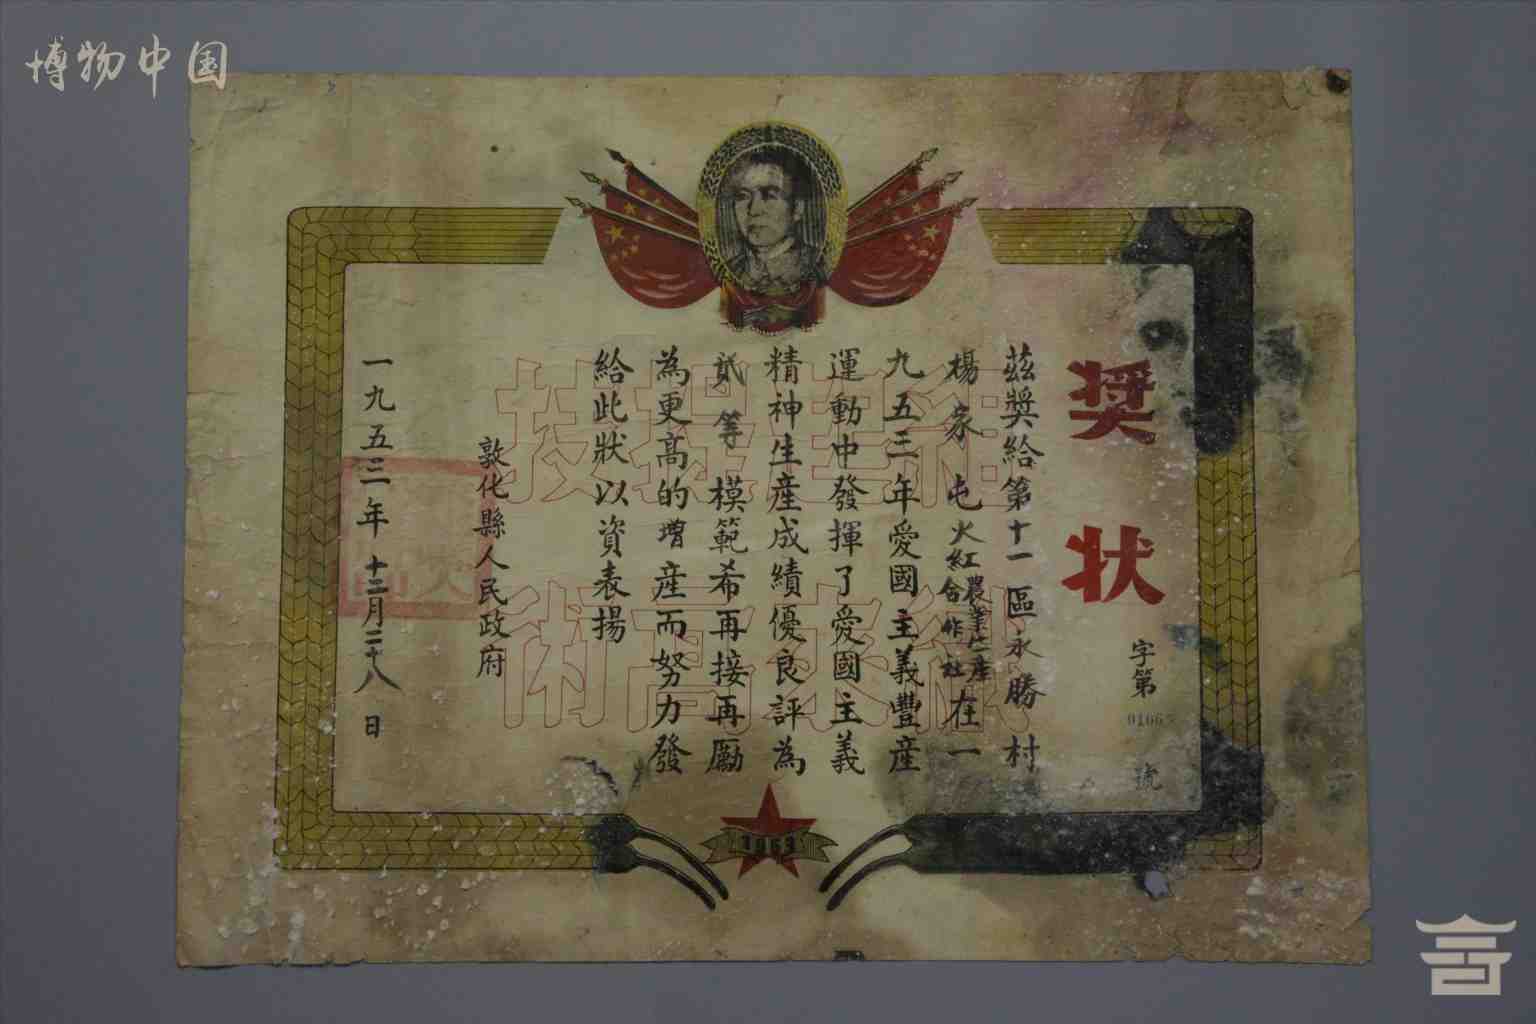 博物中国
奖状
字第0166号
茲獎給第十一區永勝村
楊家屯火紅農業生產合作社在一
九五三年愛國主義豐産
運動中發揮了愛國主義
精神生産成績優良評為
貳等模範希再接再厲
為更高的增産而努力發
給此狀以資表揚
敦化縣人民政府
一九五三年十二月二十八日
1953